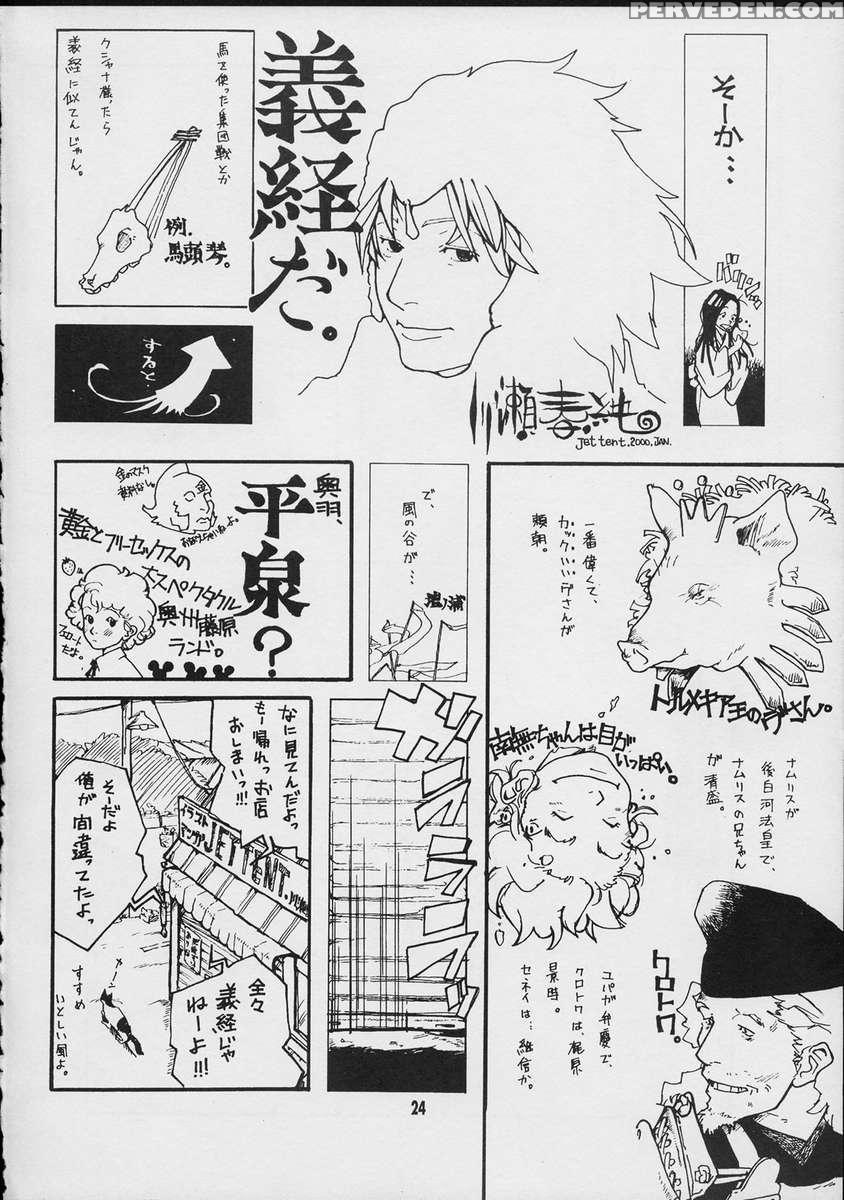 PERVEDEN.COM
そーか…
バリッ
義経だ。
川瀬春純
Jet tent. 2000, JAN.
馬を使った集団戦とか
クシャナ様ったら
義経に似てんじゃん。
例.
馬頭琴。
すると…
一番偉くて、
カックいいデさんが
頼朝。
トルメキア王のデさん。
ナムリスが
後白河法皇で、
ナムリスの兄ちゃん
が清盛。
南無ちゃんは目が
いっぱい。
ユパが弁慶で、
クロトワは、梶原
景時。
セネイは…継信か。
クロトワ。
で、
風の谷が…
壇ノ浦
奥羽、
平泉?
金のマスク
黄金とフリーセックスの
大スペクタクル
奥州藤原
ランド。
ガラララッ
なに見てんだよっ
もー帰れっお店
おしまいっ!!!
そーだよ
俺が間違ってたよっ
イラスト
マンガ
JET TENT.
全々
義経じゃ
ねーよ!!!
すすめ
いとしい風よ。
24